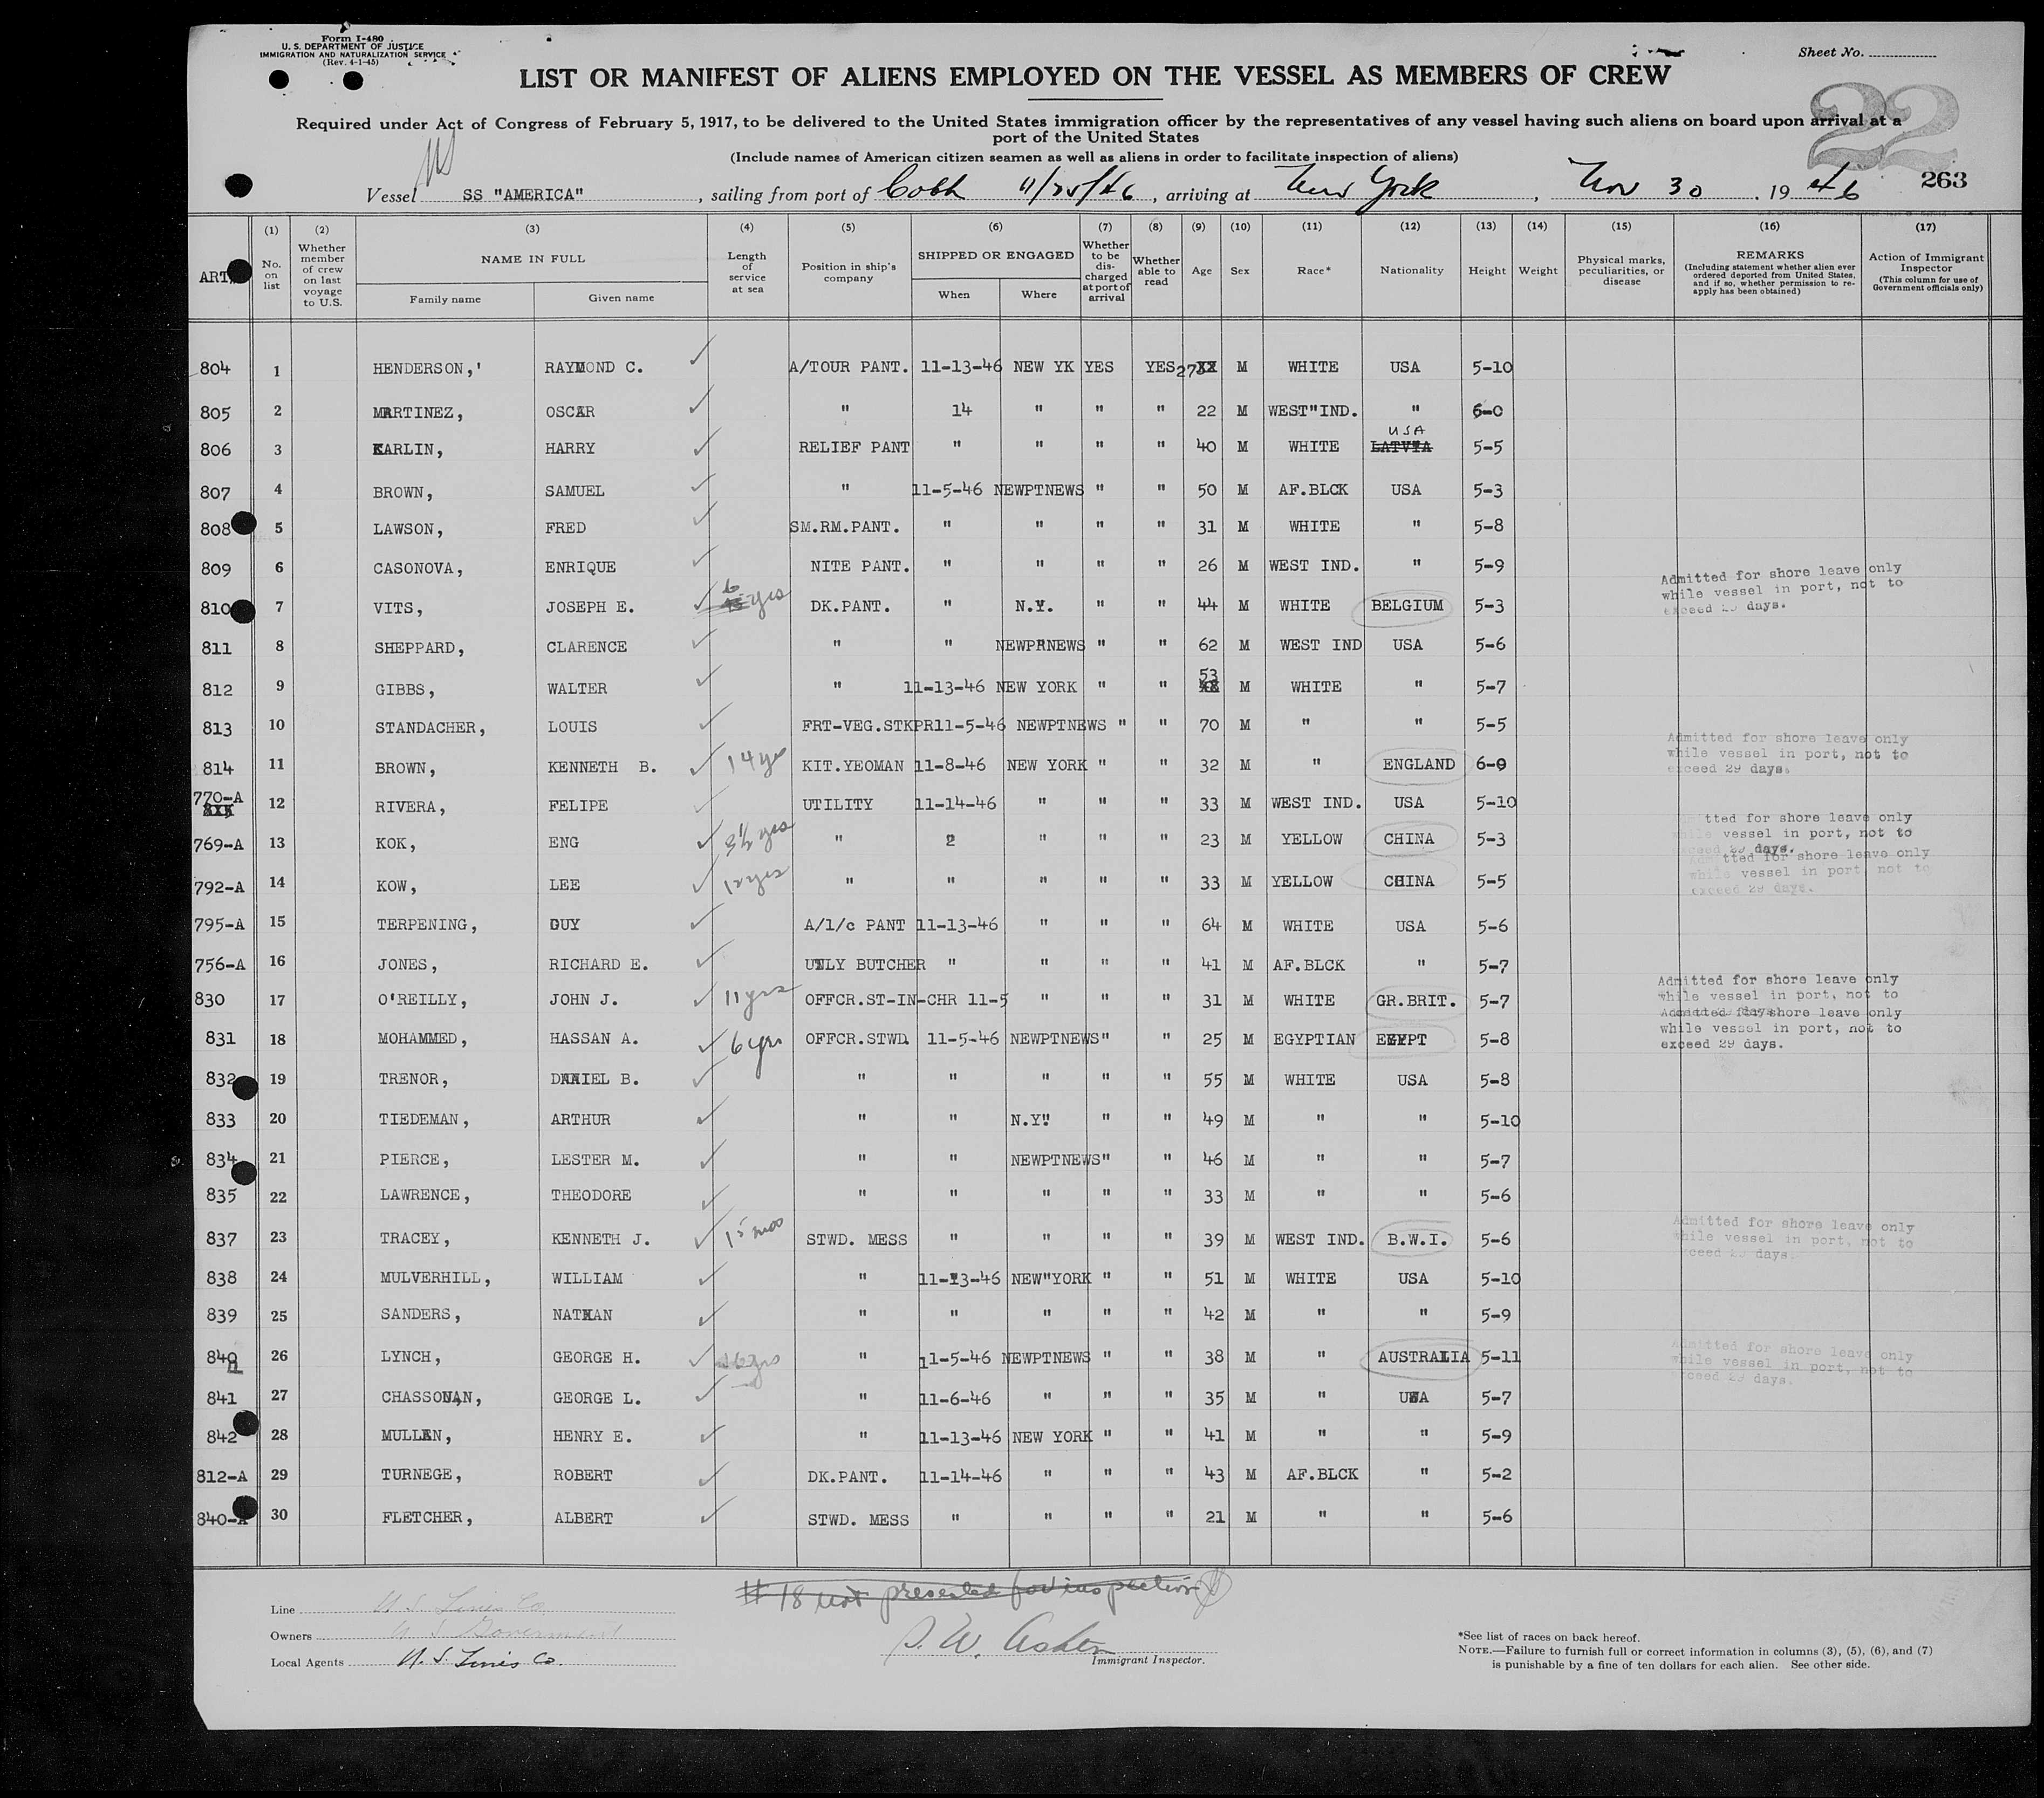 Form I-480
U. S. DEPARTMENT OF JUSTICE
IMMIGRATION AND NATURALIZATION SERVICE
(Rev. 4-1-45)
Sheet No.
LIST OR MANIFEST OF ALIENS EMPLOYED ON THE VESSEL AS MEMBERS OF CREW
22
Required under Act of Congress of February 5, 1917, to be delivered to the United States immigration officer by the representatives of any vessel having such aliens on board upon arrival at a
port of the United States
(Include names of American citizen seamen as well as aliens in order to facilitate inspection of aliens)
Vessel SS "AMERICA", sailing from port of Cobh 11/25/46, arriving at New York, Nov 30, 1946 263
ART. (1) No. on list (2) Whether member of crew on last voyage to U.S. (3) NAME IN FULL Family name Given name (4) Length of service at sea (5) Position in ship's company (6) SHIPPED OR ENGAGED When Where (7) Whether to be discharged at port of arrival (8) Whether able to read (9) Age (10) Sex (11) Race* (12) Nationality (13) Height (14) Weight (15) Physical marks, peculiarities, or disease (16) REMARKS (Including statement whether alien ever ordered deported from United States, and if so, whether permission to reapply has been obtained) (17) Action of Immigrant Inspector (This column for use of Government officials only)
804 1 HENDERSON,' RAYMOND C. A/TOUR PANT. 11-13-46 NEW YK YES YES 27 M WHITE USA 5-10
805 2 MARTINEZ, OSCAR " 14 " " " 22 M WEST"IND. " 6-0
806 3 KARLIN, HARRY RELIEF PANT " " " " 40 M WHITE USA LATVIA 5-5
807 4 BROWN, SAMUEL " 11-5-46 NEWPTNEWS " " 50 M AF.BLCK USA 5-3
808 5 LAWSON, FRED SM.RM.PANT. " " " " 31 M WHITE " 5-8
809 6 CASONOVA, ENRIQUE NITE PANT. " " " " 26 M WEST IND. " 5-9
810 7 VITS, JOSEPH E. 6 yrs DK.PANT. " N.Y. " " 44 M WHITE BELGIUM 5-3 Admitted for shore leave only while vessel in port, not to exceed 29 days.
811 8 SHEPPARD, CLARENCE " " NEWPRNEWS " " 62 M WEST IND USA 5-6
812 9 GIBBS, WALTER " 11-13-46 NEW YORK " " 53 M WHITE " 5-7
813 10 STANDACHER, LOUIS FRT-VEG.STKPR 11-5-46 NEWPTNEWS " " 70 M " " 5-5
814 11 BROWN, KENNETH B. 14 yrs KIT.YEOMAN 11-8-46 NEW YORK " " 32 M " ENGLAND 6-0 Admitted for shore leave only while vessel in port, not to exceed 29 days.
770-A 12 RIVERA, FELIPE UTILITY 11-14-46 " " " 33 M WEST IND. USA 5-10
769-A 13 KOK, ENG 3½ yrs " 2 " " " 23 M YELLOW CHINA 5-3 Admitted for shore leave only while vessel in port, not to exceed 29 days.
792-A 14 KOW, LEE 12 yrs " " " " " 33 M YELLOW CHINA 5-5 Admitted for shore leave only while vessel in port, not to exceed 29 days.
795-A 15 TERPENING, GUY A/1/c PANT 11-13-46 " " " 64 M WHITE USA 5-6
756-A 16 JONES, RICHARD E. UTLY BUTCHER " " " " 41 M AF.BLCK " 5-7
830 17 O'REILLY, JOHN J. 11 yrs OFFCR.ST-IN-CHR 11-5 " " " 31 M WHITE GR.BRIT. 5-7 Admitted for shore leave only while vessel in port, not to exceed 29 days.
831 18 MOHAMMED, HASSAN A. 6 yrs OFFCR.STWD. 11-5-46 NEWPTNEWS " " 25 M EGYPTIAN EGYPT 5-8 Admitted for shore leave only while vessel in port, not to exceed 29 days.
832 19 TRENOR, DANIEL B. " " " " " 55 M WHITE USA 5-8
833 20 TIEDEMAN, ARTHUR " " N.Y." " " 49 M " " 5-10
834 21 PIERCE, LESTER M. " " NEWPTNEWS " " 46 M " " 5-7
835 22 LAWRENCE, THEODORE " " " " " 33 M " " 5-6
837 23 TRACEY, KENNETH J. 15 mos STWD. MESS " " " " 39 M WEST IND. B.W.I. 5-6 Admitted for shore leave only while vessel in port, not to exceed 29 days.
838 24 MULVERHILL, WILLIAM " 11-13-46 NEW"YORK " " 51 M WHITE USA 5-10
839 25 SANDERS, NATHAN " " " " " 42 M " " 5-9
840 26 LYNCH, GEORGE H. yrs " 11-5-46 NEWPTNEWS " " 38 M " AUSTRALIA 5-11 Admitted for shore leave only while vessel in port, not to exceed 29 days.
841 27 GEORGE L. " 11-6-46 " " " 35 M " USA 5-7
842 28 MULLEN, HENRY E. " 11-13-46 NEW YORK " " 41 M " " 5-9
812-A 29 TURNEGE, ROBERT DK.PANT. 11-14-46 " " " 43 M AF.BLCK " 5-2
840-A 30 FLETCHER, ALBERT STWD. MESS " " " " 21 M " " 5-6
# 18 not presented for inspection
Line U S Lines Co
Owners U S Government
Local Agents U. S. Lines Co.
Immigrant Inspector.
*See list of races on back hereof.
NOTE.—Failure to furnish full or correct information in columns (3), (5), (6), and (7)
is punishable by a fine of ten dollars for each alien. See other side.